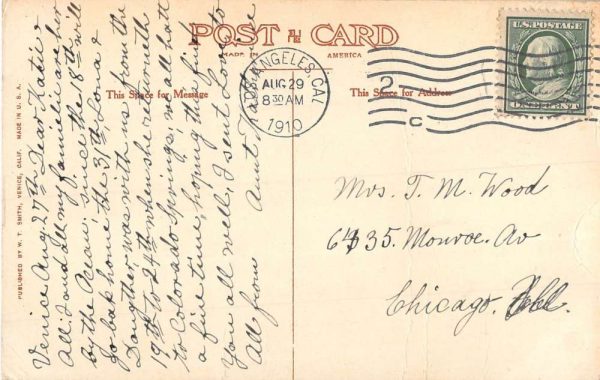 POST CARD
MADE IN AMERICA
This Space for Message
This Space for Address
LOS ANGELES, CAL
AUG 29
8 30 AM
1910
2
C
U.S. POSTAGE
ONE CENT
Mrs. T. M. Wood
6435. Monroe. Av
Chicago. Ill.
Venice Aug. 27th Dear Katie &
All. I and all my familie are here
by the Ocean since the 8th will
go back home the 31th, Lona &
Daughter was with us from the
19th to 24th when she returneth
to Colorado Springs, we all hatt
a fine time, hoping this find
You all well, I sent Love to
All from Aunt
PUBLISHED BY W. T. SMITH, VENICE, CALIF. MADE IN U. S. A.